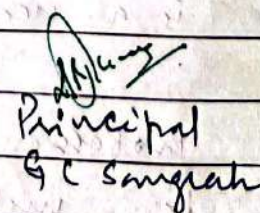 Principal
G C Sangrah